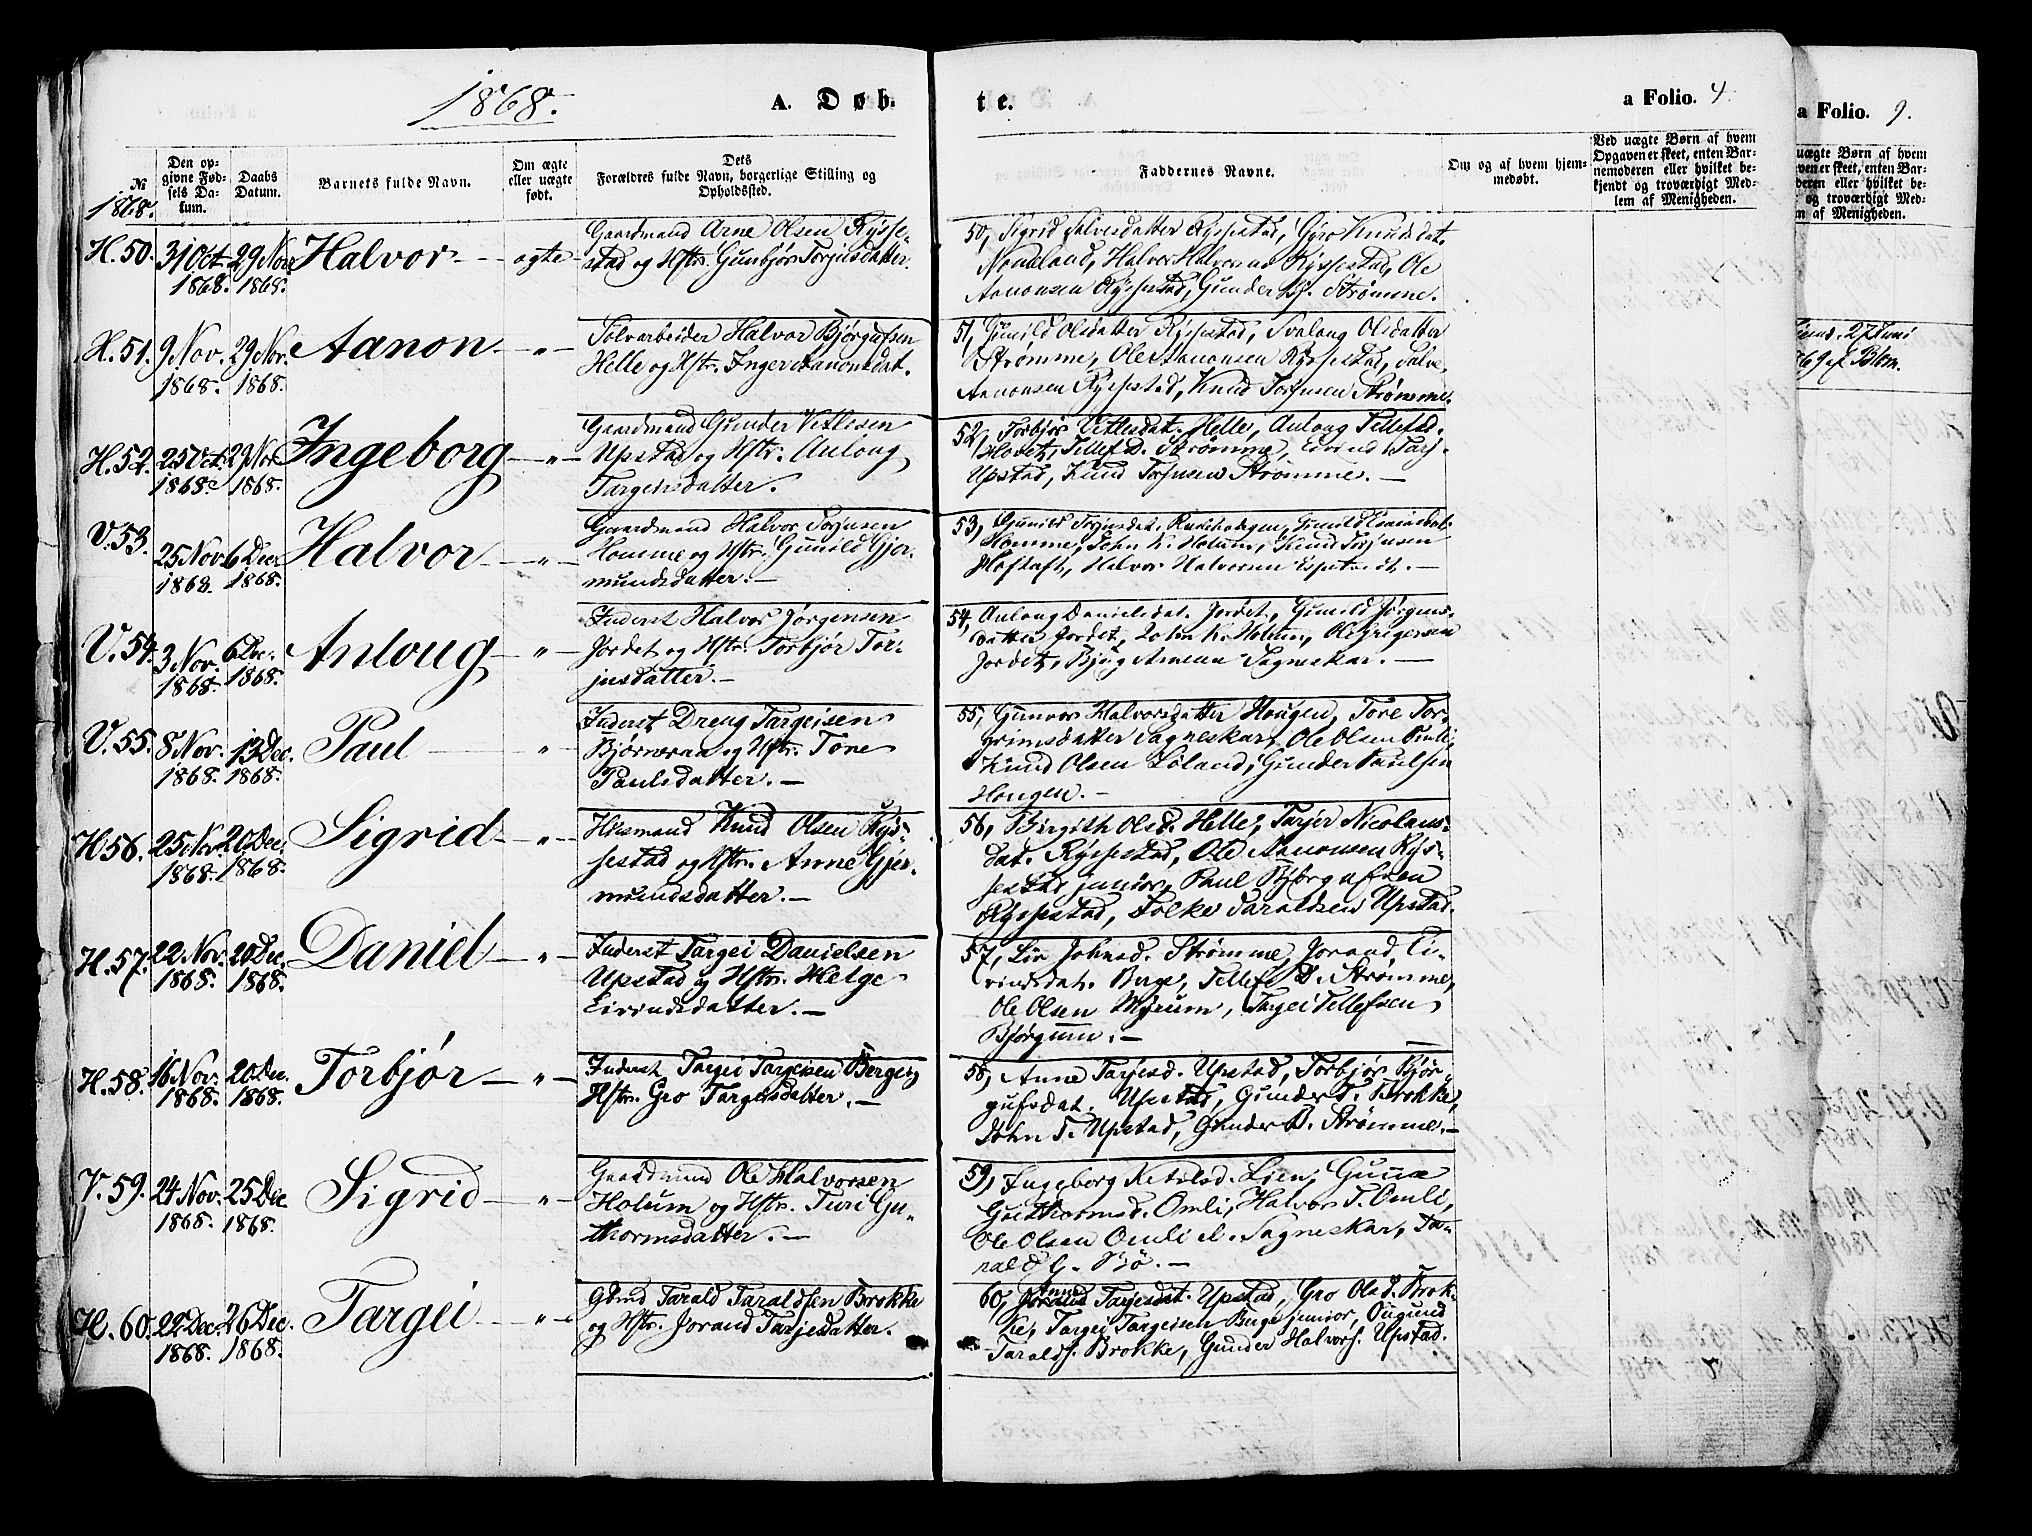 1868.
A. Døb-
te.
a Folio. 4.
a Folio. 9.
№
1868.
Den op-
givne Fød-
sels Da-
tum.
Daabs
Datum.
Barnets fulde Navn.
Om ægte
eller uægte
født.
Dets
Forældres fulde Navn, borgerlige Stilling og
Opholdssted.
Faddernes Navne.
Om og af hvem hjem-
medøbt.
Ved uægte Børn af hvem
Opgaven er skeet, enten Bar-
nemoderen eller hvilket be-
kjendt og troværdigt Med-
lem af Menigheden.
H. 50. 31 Oct. 1868. 29 Nov. 1868. Halvor ægte
Gaardmand Arne Olsen Rysse-
stad og Hstr. Gunbjør Torjusdatter.
50, Sigrid Salvesdatter Ryssestad, Gyro Knudsdat.
Nomeland, Halvor Halvorsen Ryssestad, Ole
Aanonsen Ryssestad, Gunder Bj. Strømme.
H. 51. 9 Nov. 1868. 29 Nov. 1868. Aanon — „ —
Sølvarbeider Halvor Bjørgufsen
Helle og Hstr. Inger Aanonsdat.
51, Gunild Olsdatter Ryssestad, Svaloug Olsdatter
Strømme, Ole Aanonsen Ryssestad, Salve
Aanonsen Ryssestad, Knud Torjusen Strømme.
H. 52. 25 Oct. 1868. 29 Nov. 1868. Ingeborg — „ —
Gaardmand Gunder Vetlesen
Upstad og Hstr. Anloug
Targeisdatter.
52, Torbjør Vetlesdat. Helle, Anloug Tellefsd.
Tellef D. Strømme,
Upstad, Knud Torjusen Strømme. —
V. 53. 25 Nov. 1868. 6 Dec. 1868. Halvor — „ —
Gaardmand Halvor Torjusen
Homme og Hstr. Gunild Gjer-
mundsdatter. —
53, Gunild Torjusdat. Gunild
Homme, John K. Holum, Knud Torjusen
Halvor Halvorsen —
V. 54. 3 Nov. 1868. 6 Dec. 1868. Anloug — „ —
Inderst Halvor Jørgensen
Jordet og Hstr. Torbjør Tor-
jusdatter. —
54, Anloug Danielsdat. Jordet, Gunild Jørgens-
datter Jordet, John K. Holum, Ole Grigersen
Jordet, Bjug Sagneskar. —
V. 55. 8 Nov. 1868. 13 Dec. 1868. Paul — „
Inderst Dreng Targeisen
Bjørnaraa og Hstr. Tone
Paulsdatter. —
55, Gunvor Halvorsdatter Hougen, Tore Tor-
grimsdatter Sagneskar, Ole Olsen Omli,
Knud Olsen Løland, Gunder Paulsen
Hougen. —
H. 56. 25 Nov. 1868. 20 Dec. 1868. Sigrid — „ —
Huusmand Knud Olsen Rys-
sestad og Hstr. Anne Gjer-
mundsdatter. —
56, Birgith Olsd. Helle, Tarjer Nicolaus-
dat. Ryssestad, Ole Aanonsen Rys-
sestad junior, Paul Bjørgufsen
Ryssestad, Folke Taraldsen Upstad.
H. 57. 22 Nov. 1868. 20 Dec. 1868. Daniel — „ —
Inderst Targei Danielsen
Upstad og Hstr. Helge
Eivindsdatter. —
57, Liv Johnsd. Strømme, Jorand Ei-
vindsdat. Berge, Tellef D. Strømme,
Ole Olsen Myrum, Targei Tellefsen
Bjørgum. —
H. 58. 16 Nov. 1868. 20 Dec. 1868. Torbjør — „ —
Inderst Targei Targeisen Berge og
Hstr. Gro Targeisdatter. —
58, Anne Tarjesd. Upstad, Torbjør Bjør-
gufsdat. Upstad, Gunder T. Brokke,
John T. Upstad, Gunder B. Strømme. —
V. 59. 24 Nov. 1868. 25 Dec. 1868. Sigrid — „
Gaardmand Ole Halvorsen
Holum og Hstr. Turi Gu-
thormsdatter. —
59, Ingeborg Ketilsd. Lien, Gunne
Guthormsd. Omli, Halvor T. Omli,
Ole Olsen Omli el. Sagneskar, Ta-
rald G. Bø. —
H. 60. 22 Dec. 1868. 26 Dec. 1868. Targei — „ —
Gbrud Tarald Taraldsen Brokke
og Hstr. Jorand Tarjesdatter.
60, Anne Tarjesdat. Upstad, Gro Olsd. Brok-
ke, Targei Targeisen Berge junior, Ougund
Taralds. Brokke, Gunder Halvors. Upstad.
uægte Børn af hvem
ven er skeet, enten Bar-
deren eller hvilket be-
og troværdigt Med-
m af Menigheden.
27 Juni
Blom.